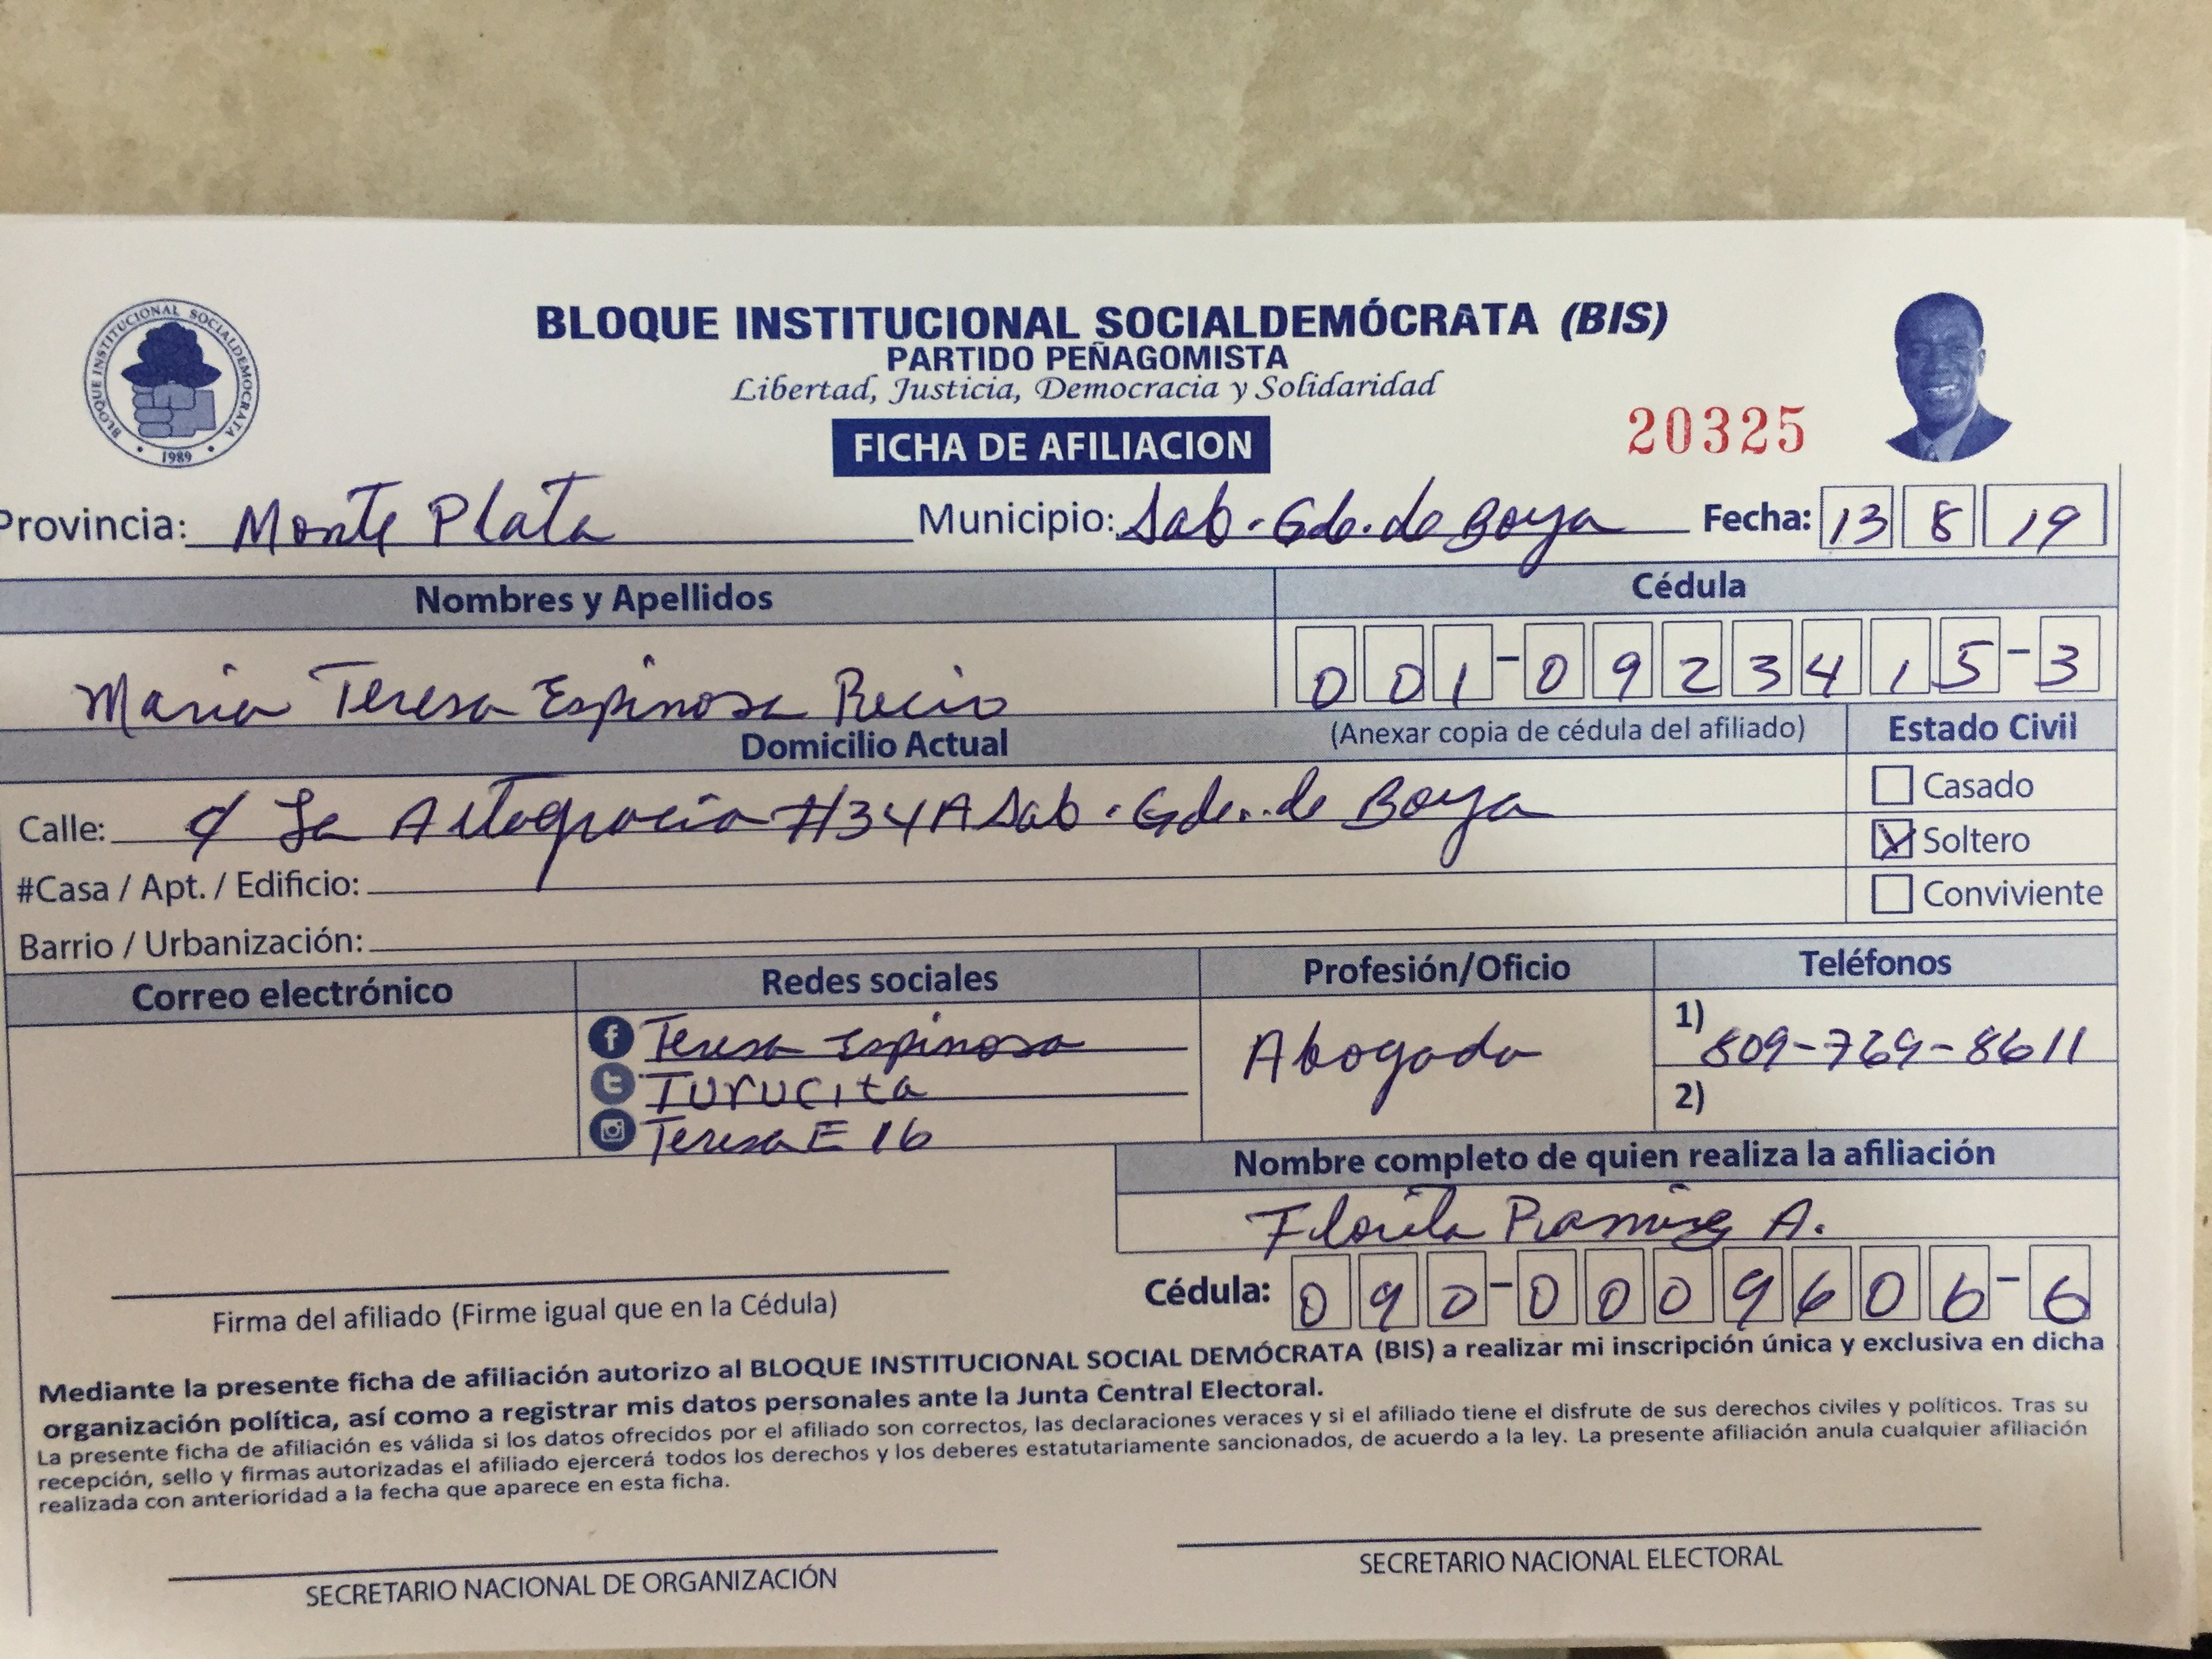 BLOQUE INSTITUCIONAL SOCIALDEMOCRATA
1989
BLOQUE INSTITUCIONAL SOCIALDEMÓCRATA (BIS)
PARTIDO PEÑAGOMISTA
Libertad, Justicia, Democracia y Solidaridad
FICHA DE AFILIACION
20325
Provincia: Monte Plata Municipio: Sab. Gde. de Boya Fecha: 13 8 19
Nombres y Apellidos Cédula
Maria Teresa Espinosa Recio 001-0923415-3
Domicilio Actual (Anexar copia de cédula del afiliado) Estado Civil
Calle: c/ La Altagracia #34A Sab. Gde. de Boya
Casado
Soltero
#Casa / Apt. / Edificio:
Conviviente
Barrio / Urbanización:
Correo electrónico Redes sociales Profesión/Oficio Teléfonos
Teresa Espinosa Abogada 1) 809-769-8611
Turucita 2)
Teresa E 16
Nombre completo de quien realiza la afiliación
Florila Ramirez A.
Cédula: 090-0009606-6
Firma del afiliado (Firme igual que en la Cédula)
Mediante la presente ficha de afiliación autorizo al BLOQUE INSTITUCIONAL SOCIAL DEMÓCRATA (BIS) a realizar mi inscripción única y exclusiva en dicha
organización política, así como a registrar mis datos personales ante la Junta Central Electoral.
La presente ficha de afiliación es válida si los datos ofrecidos por el afiliado son correctos, las declaraciones veraces y si el afiliado tiene el disfrute de sus derechos civiles y políticos. Tras su
recepción, sello y firmas autorizadas el afiliado ejercerá todos los derechos y los deberes estatutariamente sancionados, de acuerdo a la ley. La presente afiliación anula cualquier afiliación
realizada con anterioridad a la fecha que aparece en esta ficha.
SECRETARIO NACIONAL DE ORGANIZACIÓN SECRETARIO NACIONAL ELECTORAL